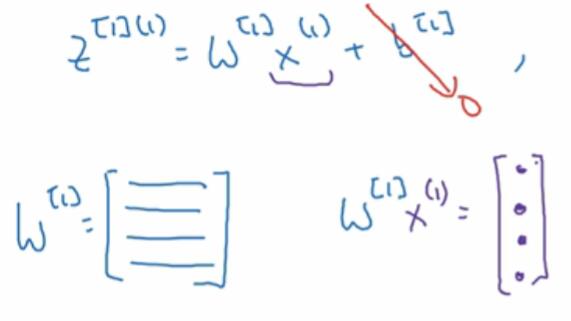 z^{[1](1)} = W^{[1]} x^{(1)} + b^{[1]} → 0 ,
W^{[1]} = [ ] W^{[1]} x^{(1)} = [ ]